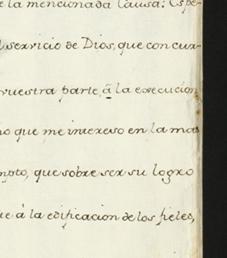 e la mencionada Causa: Espe-
l servicio de Dios, que concur-
vuestra parte à la execucion
no que me intereso en la mas
mpto, que sobre ser su logro
ue à la edificacion de los fieles,